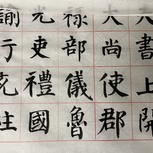 諭光祿大夫
行吏部尚書
充禮儀使上
柱國魯郡開